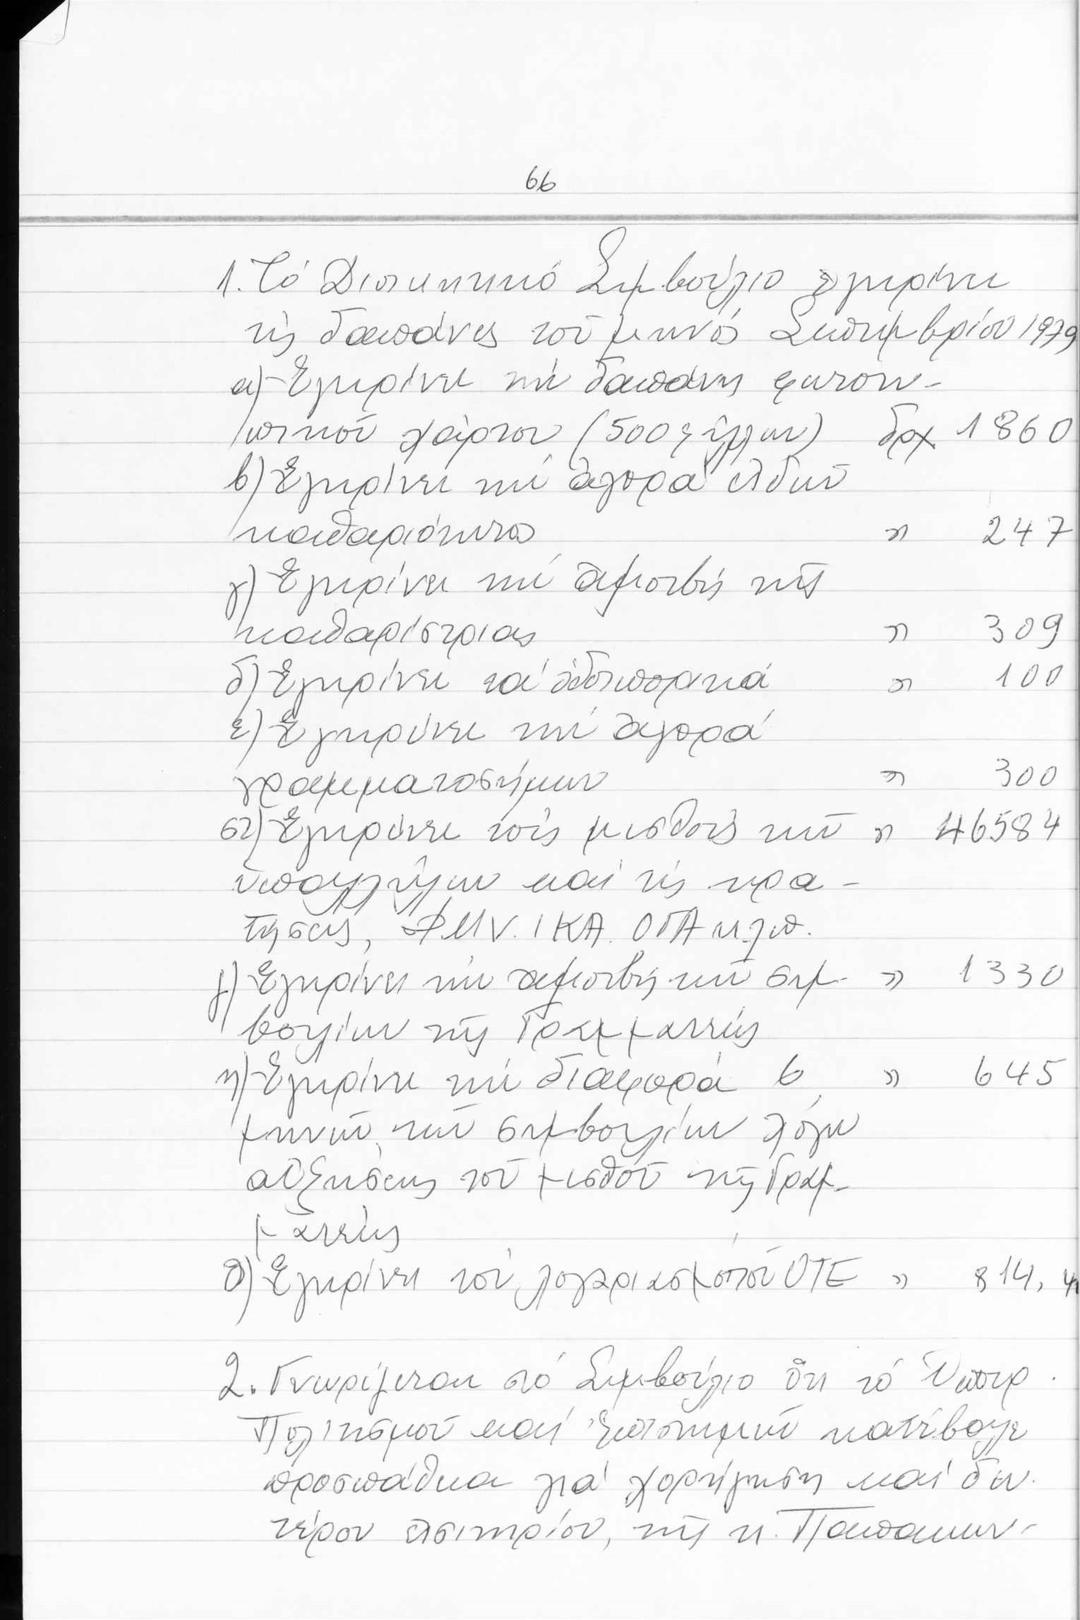 66
1. Τό Διοικητικό Συμβούλιο ἐγκρίνει
τίς δαπάνες τοῦ μηνός Σεπτεμβρίου 1979
α) Ἐγκρίνει τήν δαπάνη φωτοτυ-
πικοῦ χάρτου (500 φύλλων) δρχ 1860
β) Ἐγκρίνει τήν ἀγορά εἰδῶν
καθαριότητος " 247
γ) Ἐγκρίνει τήν ἀμοιβή τῆς
καθαρίστριας " 309
δ) Ἐγκρίνει τά ὁδοιπορικά " 100
ε) Ἐγκρίνει τήν ἀγορά
γραμματοσήμων " 300
στ) Ἐγκρίνει τούς μισθούς τῶν " 46584
ὑπαλλήλων καί τίς κρα-
τήσεις, ΦΜΥ. ΙΚΑ. ΟΓΑ κ.λπ.
ζ) Ἐγκρίνει τήν ἀμοιβή τῶν συμ- " 1330
βουλίων τῆς Γραμματεύς
η) Ἐγκρίνει τήν διαφορά 6 " 645
μηνῶν τῶν συμβουλίων λόγω
αὐξήσεως τοῦ μισθοῦ τῆς Γραμ-
ματεύς
θ) Ἐγκρίνει τόν λογαριασμό τοῦ ΟΤΕ " 814,
2. Γνωρίζεται στό Συμβούλιο ὅτι τό Ὑπουρ.
Πολιτισμοῦ καί Ἐπιστημῶν κατέβαλε
προσπάθεια γιά χορήγηση καί δευ-
τέρου εἰσιτηρίου, τῆς κ. Παπακων-